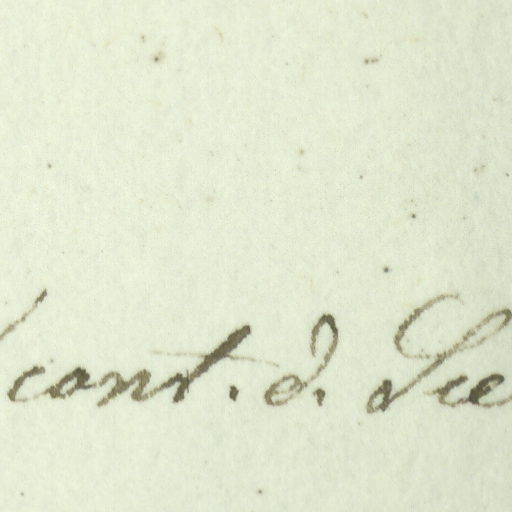 cant. d. Lie